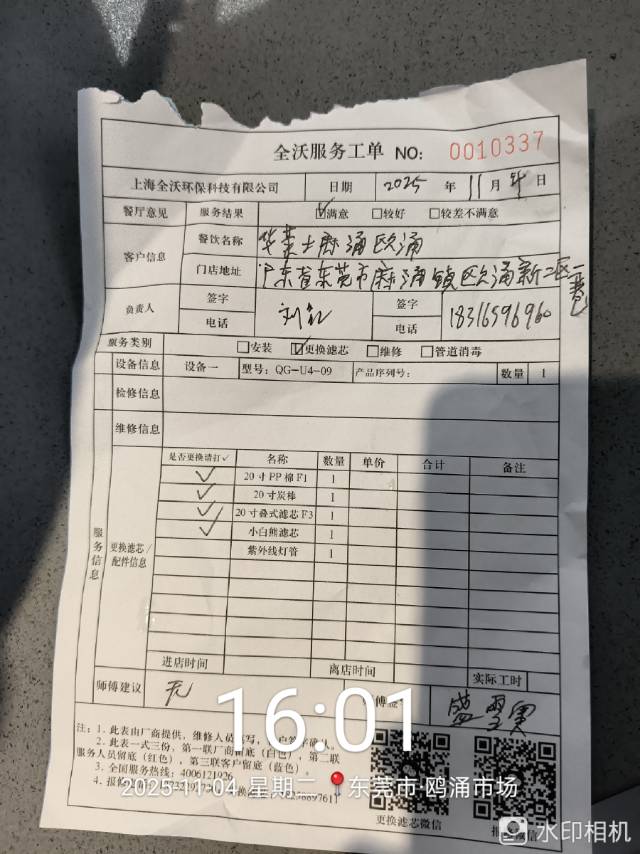 全沃服务工单 NO: 0010337
上海全沃环保科技有限公司 日期 2025 年 11 月 4 日
餐厅意见 服务结果 ☑满意 □较好 □较差不满意
客户信息 餐饮名称 华莱士麻涌欧涌
门店地址 广东省东莞市麻涌镇欧涌新二区一巷
负责人 签字 刘红 签字
电话 电话 18316596960
服务类别 □安装 ☑更换滤芯 □维修 □管道消毒
设备信息 设备一 型号: QG-U4-09 产品序列号: 数量 1
检修信息
维修信息
服务信息 更换滤芯/配件信息
是否更换请打✓ 名称 数量 单价 合计 备注
✓ 20寸PP棉F1 1
✓ 20寸炭棒 1
✓ 20寸叠式滤芯F3 1
✓ 小白熊滤芯 1
紫外线灯管 1
进店时间 离店时间 实际工时
师傅建议 无
16:01
注: 1. 此表由厂商提供, 维修人员
2. 此表一式三份, 第一联厂商留底(白色), 第二联
服务人员留底(红色), 第三联客户留底(蓝色)。
3. 全国服务热线: 4006121926
2025-11-04 星期二 东莞市·鸥涌市场
更换滤芯微信
水印相机